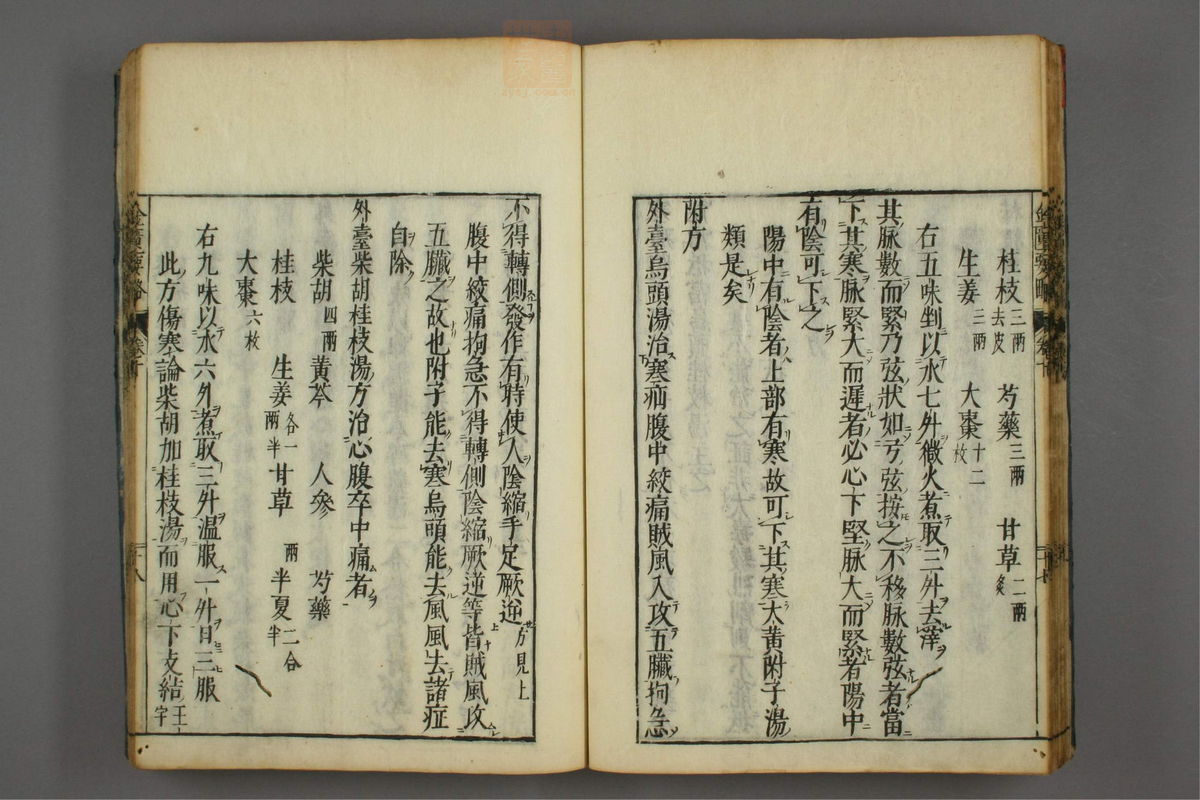 桂枝三兩去皮 芍藥三兩 甘草二兩炙
生姜三兩 大棗十二枚
右五味剉以水七升微火煮取三升去滓
其脉數而緊乃弦狀如弓弦按之不移脉數弦者當
下其寒脉緊大而遲者必心下堅脉大而緊者陽中
有陰可下之
陽中有陰者上部有寒故可下其寒大黄附子湯
類是矣
附方
外臺烏頭湯治寒疝腹中絞痛賊風入攻五臟拘急
不得轉側發作有時使人陰縮手足厥逆方見上
腹中絞痛拘急不得轉側陰縮厥逆等皆賊風攻
五臟之故也附子能去寒烏頭能去風風去諸症
自除
外臺柴胡桂枝湯方治心腹卒中痛者
柴胡四兩 黄芩 人參 芍藥
桂枝 生姜各一兩半 甘草一兩 半夏二合半
大棗六枚
右九味以水六升煮取三升溫服一升日三服
此方傷寒論柴胡加桂枝湯而用心下支結王宇
金匱要略 卷十 二十七
金匱要略 卷十 二十八